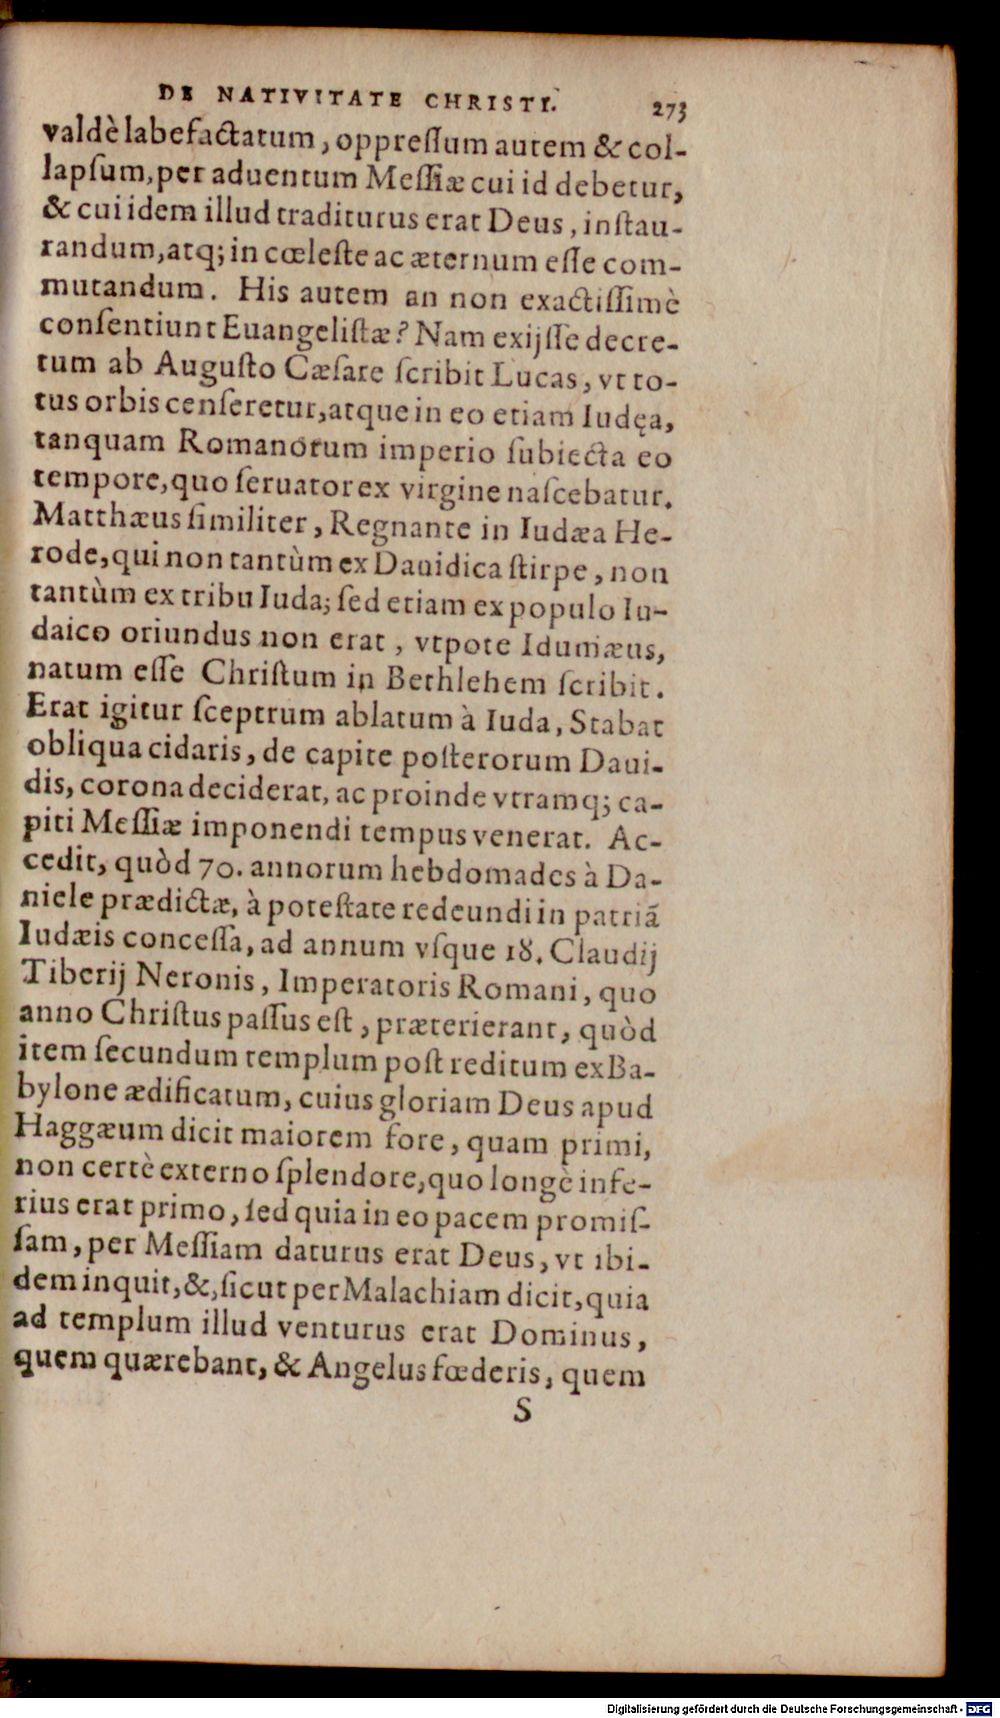 DE NATIVITATE CHRISTI. 273
valdè labefactatum, oppressum autem & col-
lapsum, per aduentum Messiæ cui id debetur,
& cui idem illud traditurus erat Deus, instau-
randum, atq; in cœleste ac æternum esse com-
mutandum. His autem an non exactissimè
consentiunt Euangelistæ? Nam exijsse decre-
tum ab Augusto Cæsare scribit Lucas, vt to-
tus orbis censeretur, atque in eo etiam Iudęa,
tanquam Romanorum imperio subiecta eo
tempore, quo seruator ex virgine nascebatur.
Matthæus similiter, Regnante in Iudæa He-
rode, qui non tantùm ex Dauidica stirpe, non
tantùm ex tribu Iuda; sed etiam ex populo Iu-
daico oriundus non erat, vtpote Idumæus,
natum esse Christum in Bethlehem scribit.
Erat igitur sceptrum ablatum à Iuda, Stabat
obliqua cidaris, de capite posterorum Daui-
dis, corona deciderat, ac proinde vtramq; ca-
piti Messiæ imponendi tempus venerat. Ac-
cedit, quòd 70. annorum hebdomades à Da-
niele prædictæ, à potestate redeundi in patriã
Iudæis concessa, ad annum vsque 18. Claudij
Tiberij Neronis, Imperatoris Romani, quo
anno Christus passus est, præterierant, quòd
item secundum templum post reditum ex Ba-
bylone ædificatum, cuius gloriam Deus apud
Haggæum dicit maiorem fore, quam primi,
non certè externo splendore, quo longè infe-
rius erat primo, sed quia in eo pacem promis-
sam, per Messiam daturus erat Deus, vt ibi-
dem inquit, &, sicut per Malachiam dicit, quia
ad templum illud venturus erat Dominus,
quem quærebant, & Angelus fœderis, quem
S
Digitalisierung gefördert durch die Deutsche Forschungsgemeinschaft - DFG